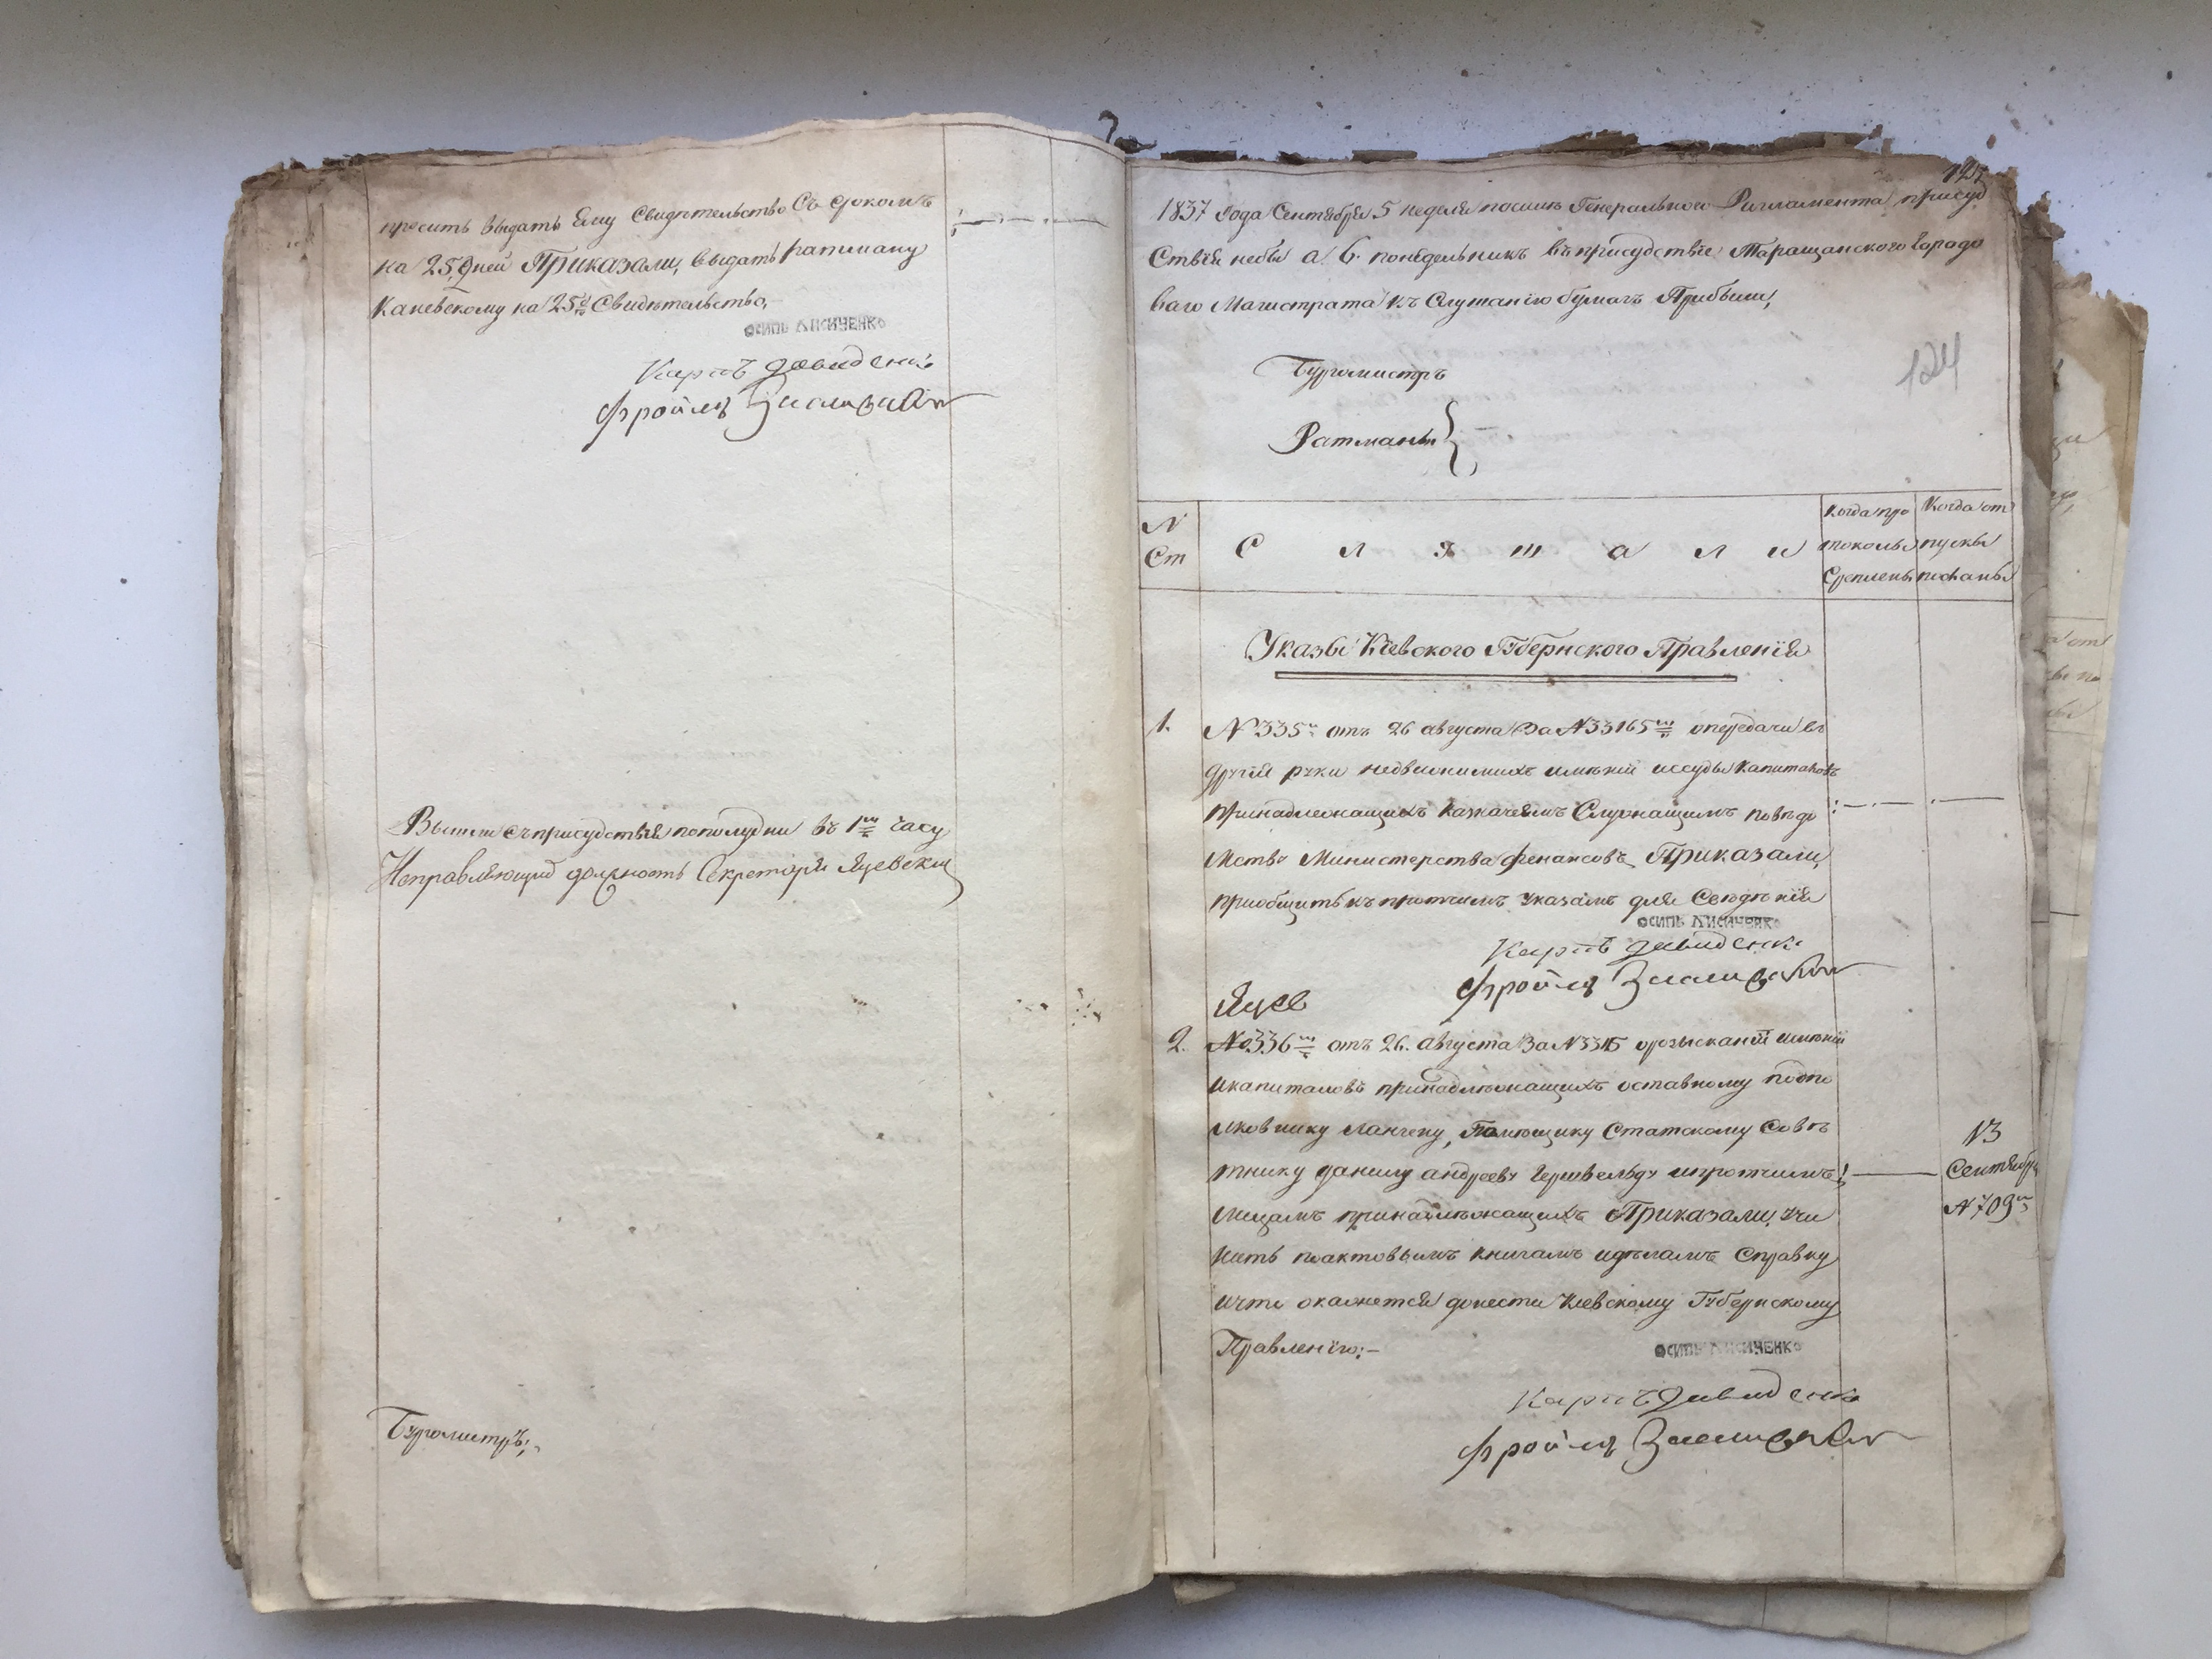 просить выдать Ему Свидѣтельство Съ срокомъ
на 25 дней Приказали, выдать ратману
Каневскому на 25 д Свидѣтельство,
ОСИПЬ ЛИСИЧЕНКО
Карпъ Давиденко
Фроимъ
Вышли съ присудствія пополудни въ 1м часу
Исправляющий должность Секретаря Яцевский
Бурмистръ
1837 года Сентября 5 неделя посиле Генеральнаго Ригламента присуд
Ствія небы а 6. понедельникъ въ присудствіе Таращанского Городо
ваго Магистрата къ Слушанію бумагъ Прибыли,
124
Бургомистръ
Ратманы
N Ст
С л у ш а л и
Когда про токолы Скреплены
Когда от пуски писаны
Указы Кіевского Губернского Правленія
1. N 335й отъ 26 августа За N 33165м о передачи въ
другія руки недвижимихъ имѣній и ссуды Капиталовъ
принадлежащихъ казначеямъ Служащимъ по вѣдо
Мству Министерства финансовъ Приказали,
приобщить къ протчимъ указамъ для Сведѣнія
ОСИПЬ ЛИСИЧЕНКО
Карпъ Давиденко
Фроимъ
Яцев
2. No 336м отъ 26. августа За N 33 о розысканіи имѣній
и капиталовъ принадлѣжащихъ оставному подпо
лковнику Лангену, Помющику Статскому Совѣ
тнику Данилу андрееву и протчимъ
Лицамъ принадлѣжащихъ Приказали, учи
нить по актовымъ книгамъ и дѣламъ Справку
и что окажется донести Киевскому Губернскому
Правленію:-
13
Сентября
N 709
ОСИПЬ ЛИСИЧЕНКО
Карпъ Давиденко
Фроимъ